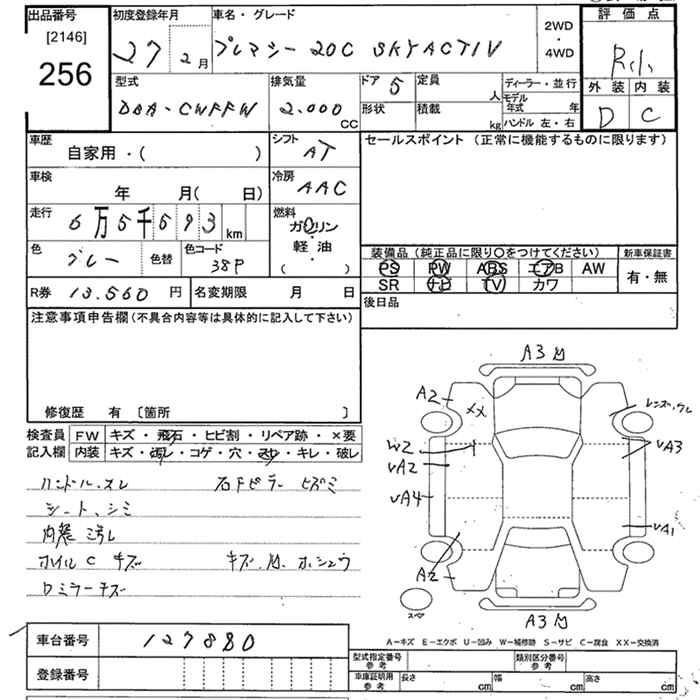 出品番号 初度登録年月 車名・グレード 2WD・4WD 評価点
[2146]
256
27 2月 プレマシー 20C SKYACTIV
型式 排気量 ドア 5 定員 人 ディーラー・並行 外装 内装
DBA-CWFFW 2.000 CC 形状 積載 kg モデル年式 年 D C
ハンドル 左・右
車歴 自家用・( ) シフト AT セールスポイント (正常に機能するものに限ります)
車検 年 月( 日) 冷房 AAC
走行 6万5千593 km 燃料 ガソリン・軽・油 ( )
色 グレー 色替 色コード 38P
装備品(純正品に限り○をつけてください) 新車保証書
PS PW ABS エアB AW 有・無
SR ナビ TV カワ
R券 13.560 円 名変期限 月 日 後日品
注意事項申告欄(不具合内容等は具体的に記入して下さい)
修復歴 有 [箇所 ]
検査員記入欄 FW キズ・飛石・ヒビ割・リペア跡・×要
内装 キズ・汚レ・コゲ・穴・スレ・キレ・破レ
ハンドル.スレ 右Fピラー ヒズミ
シート、シミ
内装 汚レ
ホイル C キズ
ロミラーキズ
A3
A2
XX
W2
VA2
VA4
A2
VA3
VA1
A3
スペア
A-キズ E-エクボ U-凹み W-補修跡 S-サビ C-腐食 XX-交換済
車台番号 127880
登録番号
型式指定番号 参考 類別区分番号 参考
車庫証明用 参考 長さ cm 幅 cm 高さ cm